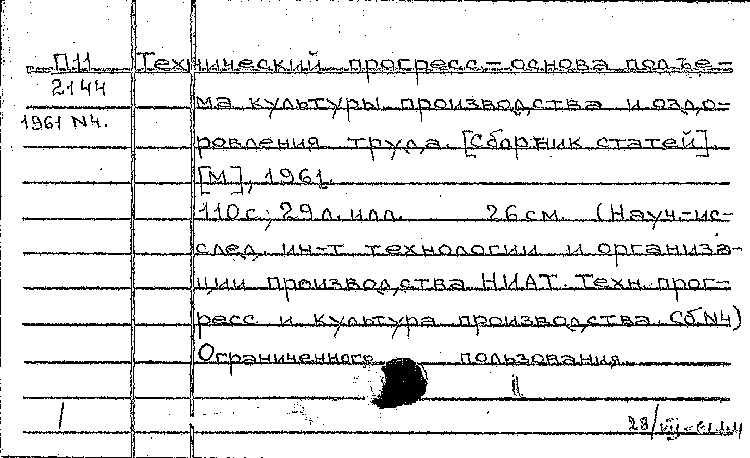 П11 Технический прогресс – основа подъе-
2144
ма культуры производства и оздо-
1961 N4.
ровления труда. [Сборник статей].
[М], 1961.
110 с; 29 л. илл. 26 см. (Науч.-ис-
след. ин-т технологии и организа-
ции производства НИАТ. Техн. прог-
ресс и культура производства. Сб. N4)
Ограниченного пользования